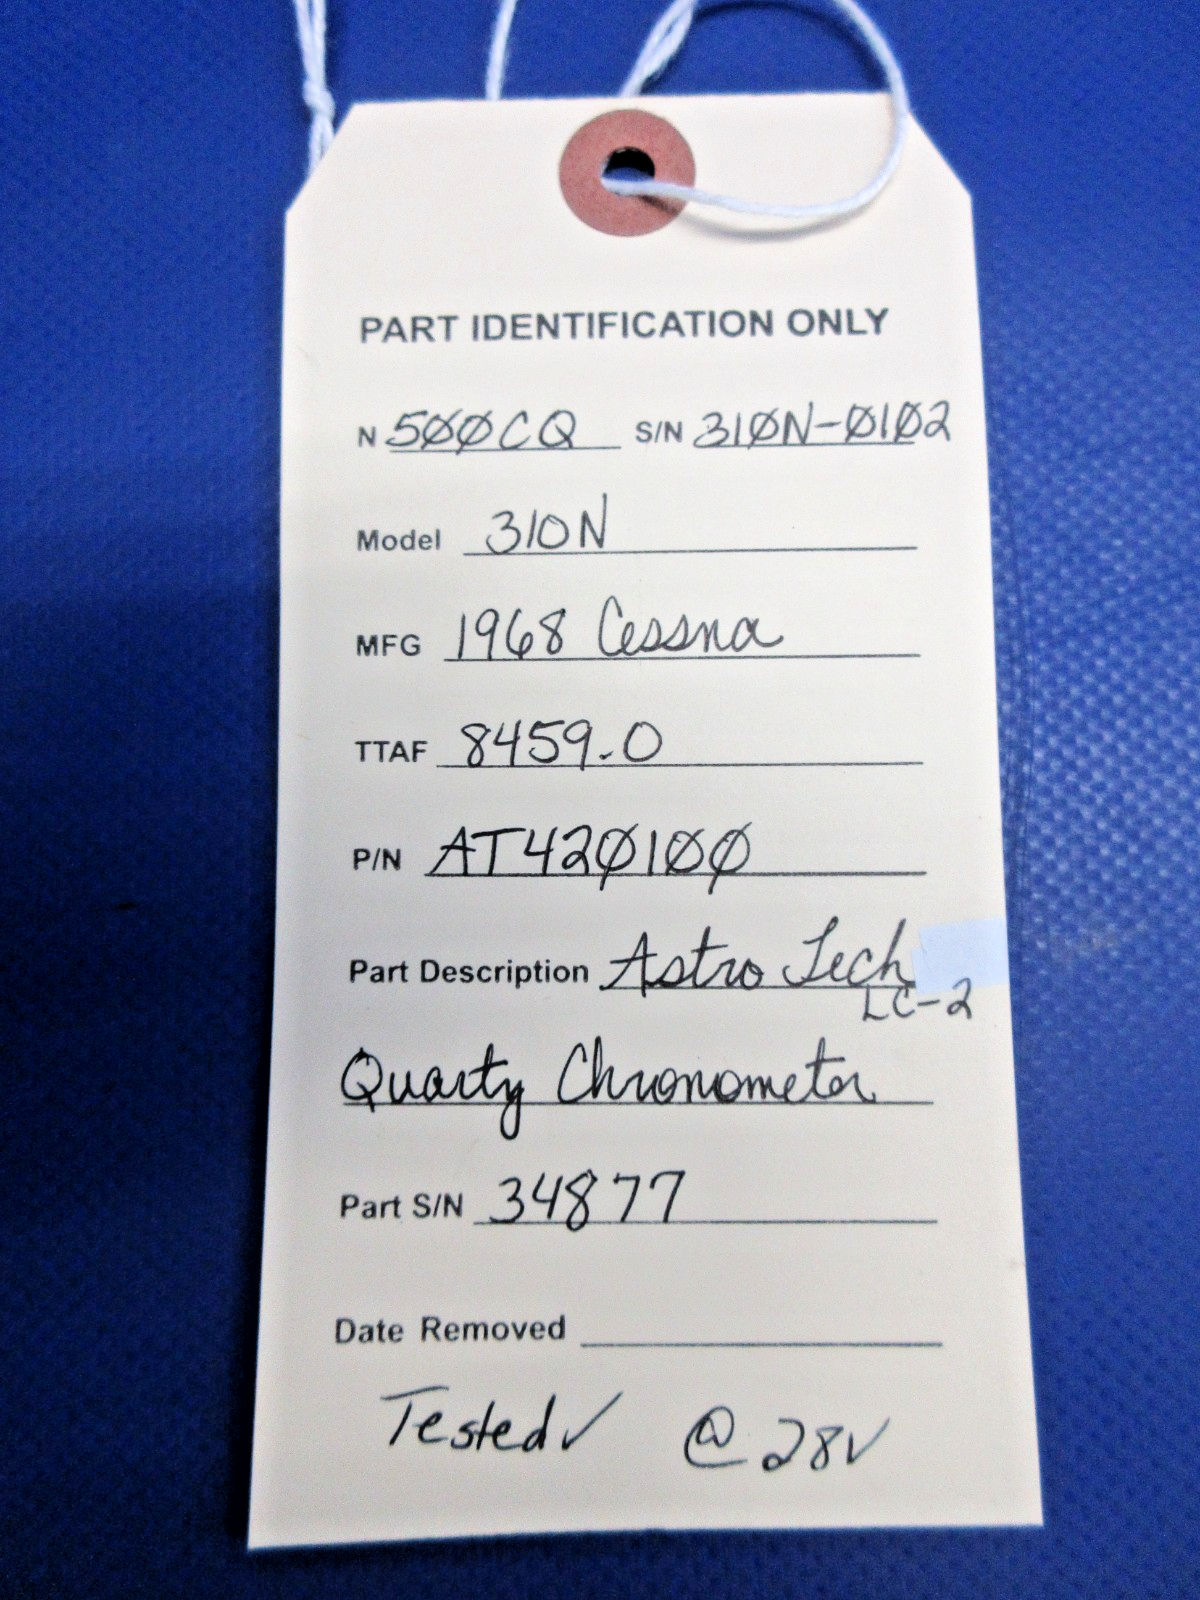 PART IDENTIFICATION ONLY
N 500CQ S/N 310N-0102
Model 310N
MFG 1968 Cessna
TTAF 8459.0
P/N AT420100
Part Description Astro Tech
LC-2
Quartz Chronometer
Part S/N 34877
Date Removed
Tested✓ @ 28V